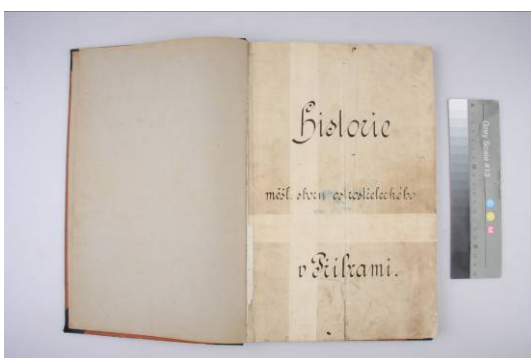 Historie
měšt. sboru ostrostřeleckého
v Příbrami.
Gray Scale #13
C
Y
M